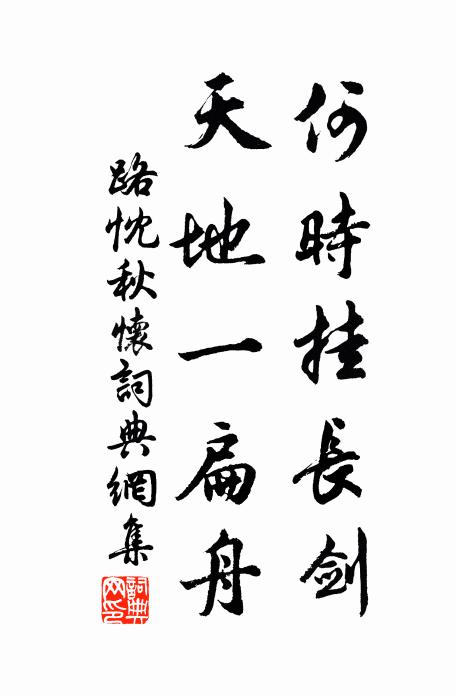 何時挂長劍
天地一扁舟
路忱秋懷詞典網集
詞典網印